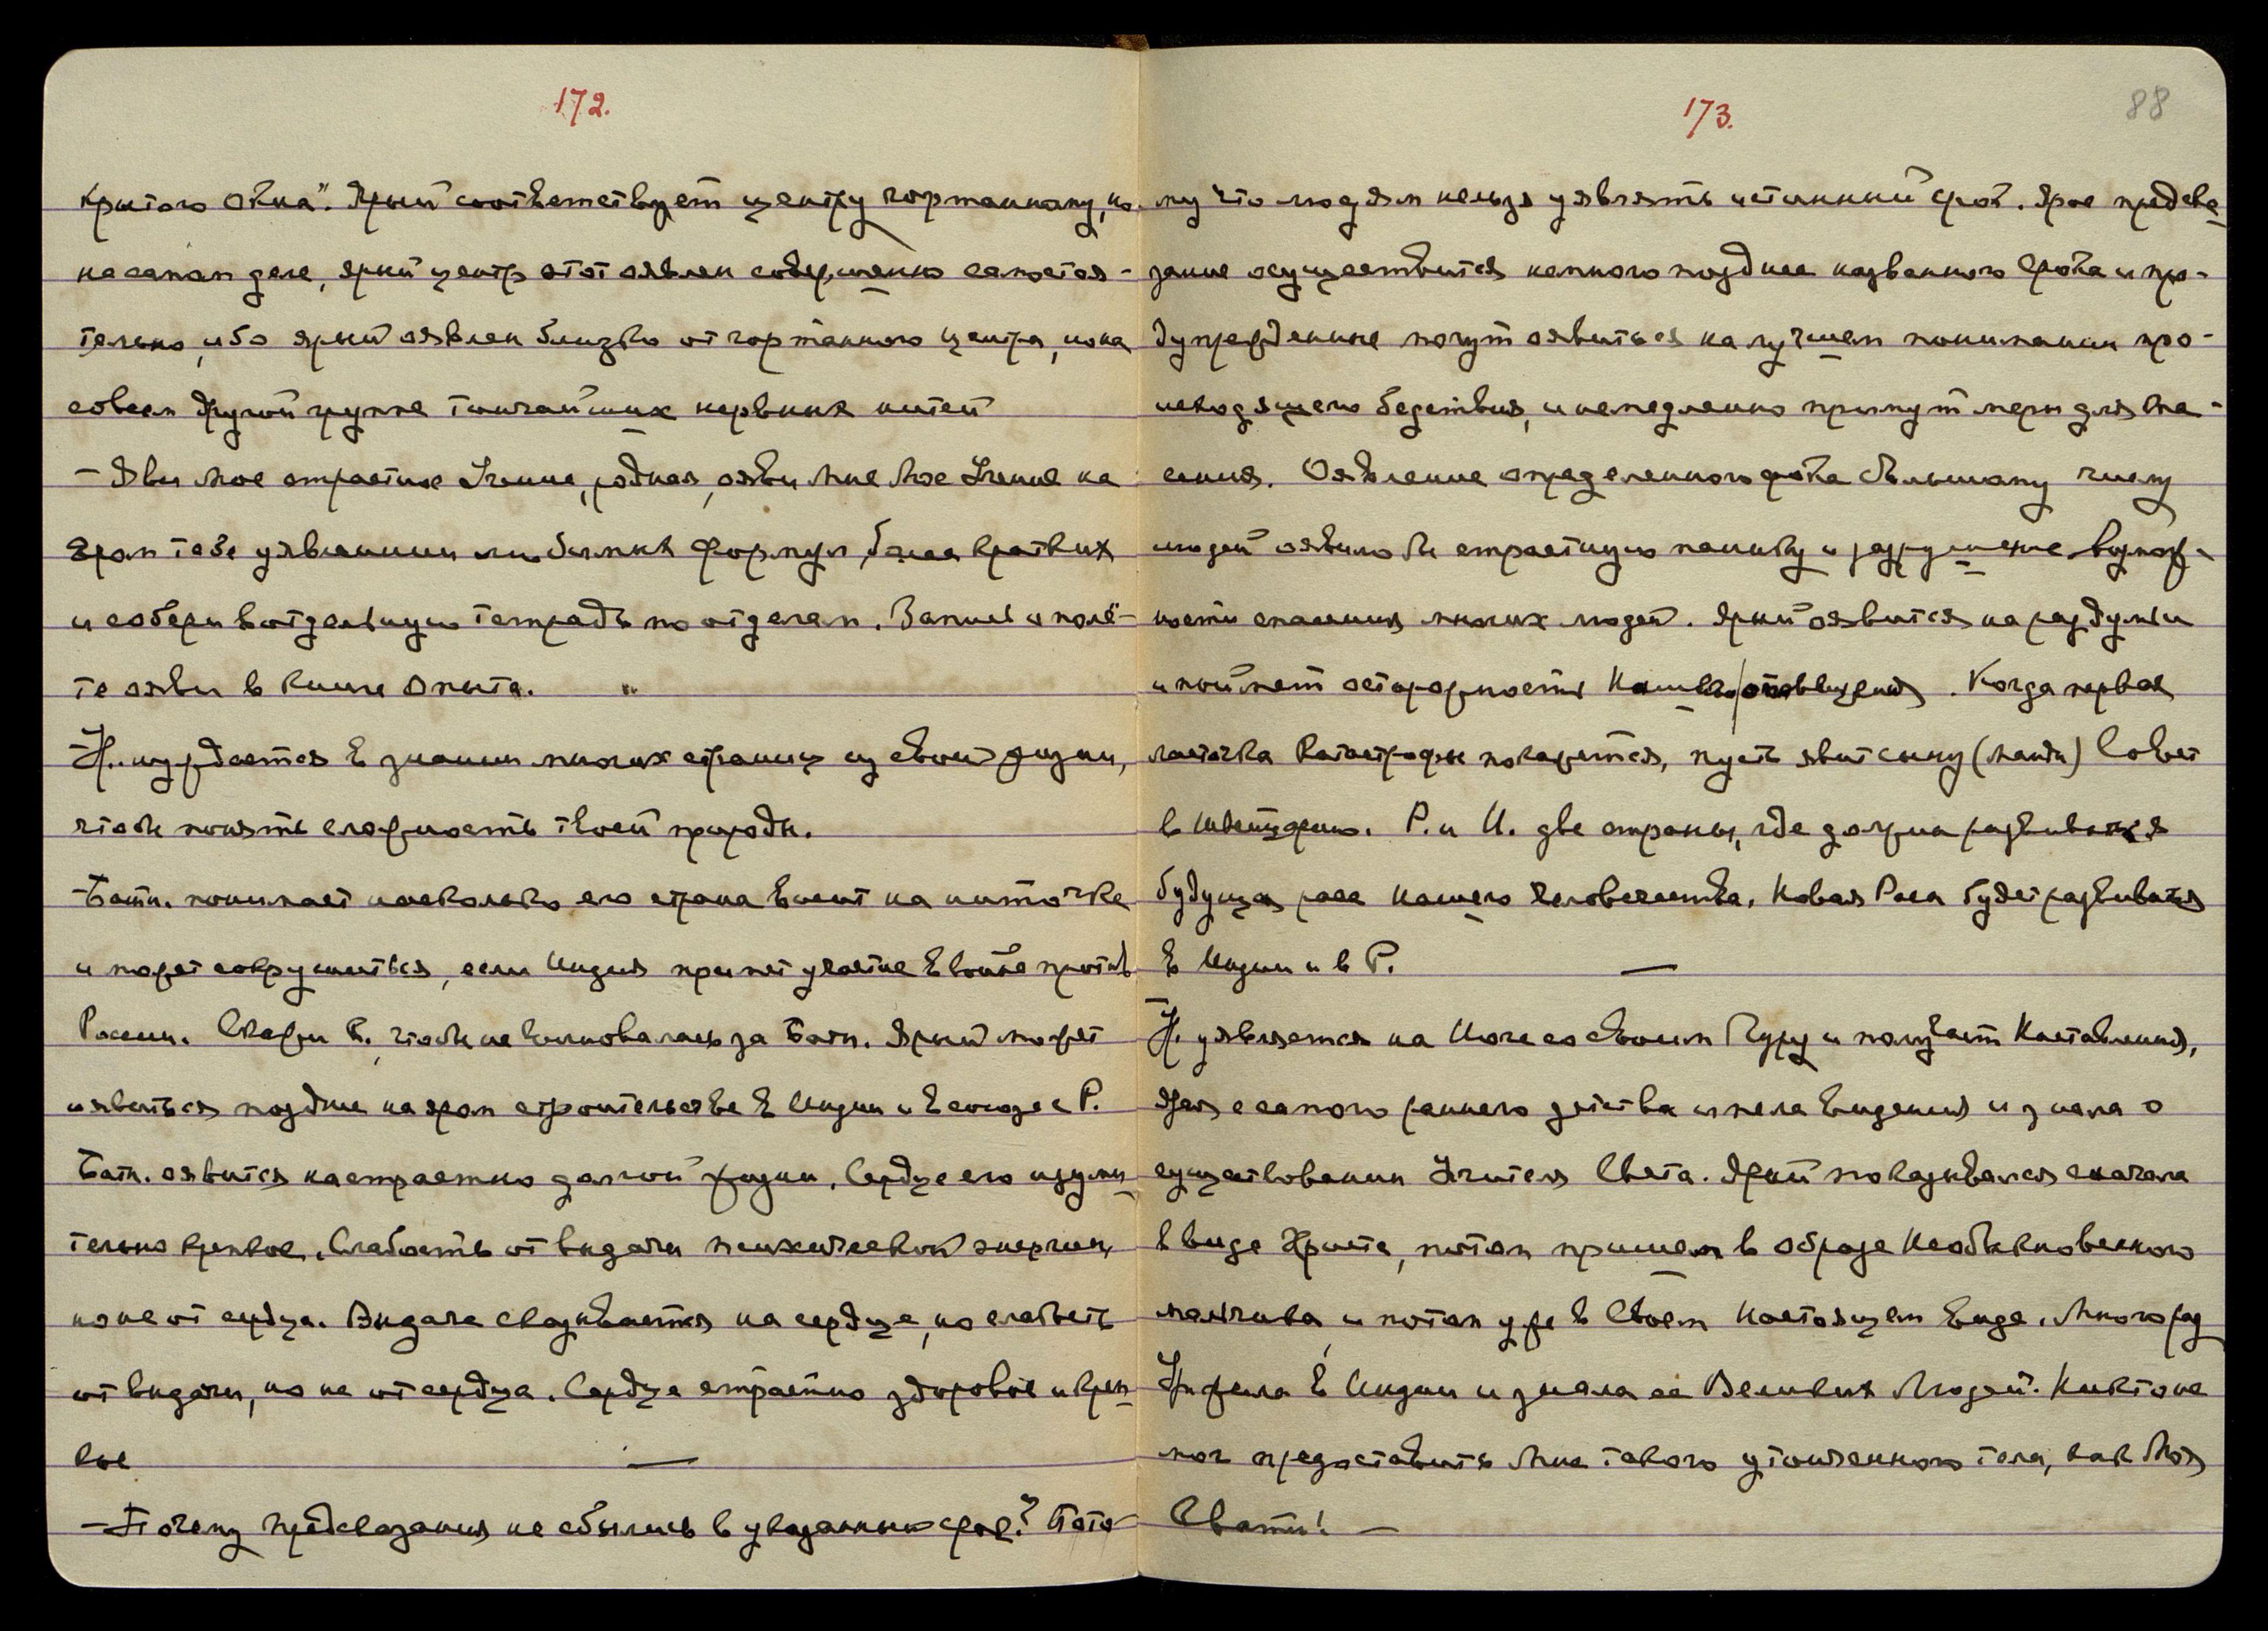 172.
крытого окна". Ярый соответствует центру гортанному, но
на самом деле, ярый центр этот оявлен совершенно самостоя-
тельно, ибо ярый оявлен близко от гортанного центра, но на
совсем другой группе тончайших нервных нитей
- Яви Мое страстное Учение, родная,ояви Мне Мое Учение на
яром тебе уявлении любимых формул, более кратких
и собери в отдельную тетрадь по отделам. Запись о полё-
теояви в книге Опыта.
- У. нуждается в знании многих страниц из своей жизни,
чтобы понять сложность твоей природы.
- Бати. понимает насколько его страна висит на ниточке
и может сокрушиться, если Индия примет участие в войне против
России. Скажи В. чтобы не волновалась за Бати. Ярый может
уявиться позднее на яром строительстве в Индии и в союзе с Р.
Бати. оявится на страстно долгой жизни. Сердце его изуми
тельно крепкое. Слабость от выдачи психической энергии,
но не от сердца. Выдача сказывается на сердце, но слабость
от выдачи, но не от сердца. Сердце страстно здоровое и креп
кое
- Почему предсказания не сбылись в указанный срок? Пото
173.
88
му что людям нельзя уявлять истинный срок. Ярое предска
зание осуществится немного позднее названного срока и пре-
дупрежденные могут оявиться на лучшем понимании про-
исходящего бедствия, и немедленно примут меры для спа-
сения. Оявление определенного срока большому числу
людей оявило бы страстную панику и разрушение возмож-
ности спасения многих людей. Ярый оявится на раздумьи
и поймет осторожность Нашего . Когда первая
ласточка Катастрофы покажется, пусть явит сыну (Манди) Совет
в Швейцарию. Р. и И. две страны, где должна развиваться
будущая раса нашего человечества. Новая Раса будет развиваться
в Индии и в Р.
У. уявляется на Йоге со своим Гуру и получает Наставления,
Ярая с самого раннего детства имела видения и знала о
существовании Учителя Света. Ярый показывался сначала
в виде Христа, потом пришел в образе Необыкновенного
мальчика, и потом уже в Своем Настоящем виде. Много раз
У. жила в Индии и знала ее Великих Людей. Никто не
мог предоставить Мне такого утонченного тела, как Моя
Свати!